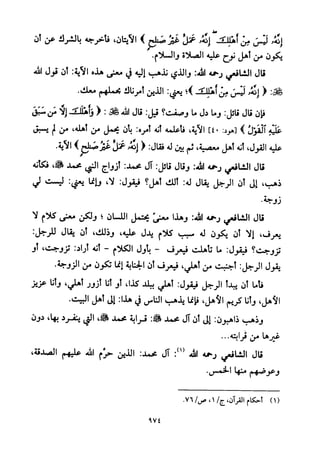 إِنَّهُ لَيْسَ مِنْ أَهْلِكَ إِنَّهُ عَمَلٌ غَيْرُ صَالِحٍ ﴾ الآيتان، فأخرجه بالشرك عن أن
يكون من أهل نوح عليه الصلاة والسلام.
قال الشافعي رحمه الله: والذي نذهب إليه في معنى هذه الآية: أن قول الله
ﷻ: ﴿ إِنَّهُ لَيْسَ مِنْ أَهْلِكَ ﴾ يعني: الذين أمرناك بحملهم معك.
فإن قال قائل: وما دل ما وصفت؟ قيل: قال الله ﷻ: ﴿ وَأَهْلَكَ إِلَّا مَن سَبَقَ
عَلَيْهِ الْقَوْلُ ﴾ [هود: ٤٠] الآية، فأعلمه أنه أمره: بأن يحمل من أهله، من لم يسبق
عليه القول، أنه أهل معصية، ثم بين له فقال: ﴿ إِنَّهُ عَمَلٌ غَيْرُ صَالِحٍ ﴾ الآية.
قال الشافعي رحمه الله: وقال قائل: آل محمد: أزواج النبي محمد ﷺ، فكأنه
ذهب، إلى أن الرجل يقال له: ألك أهل؟ فيقول: لا، وإنما يعني: ليست لي
زوجة.
قال الشافعي رحمه الله: وهذا معنىً يحتمل اللسان؛ ولكن معنى كلام لا
يعرف، إلا أن يكون له سبب كلام يدل عليه، وذلك، أن يقال للرجل:
تزوجت؟ فيقول: ما تأهلت فيعرف - بأول الكلام - أنه أراد: تزوجت، أو
يقول الرجل: أجنبت من أهلي، فيعرف أن الجنابة إنما تكون من الزوجة.
فأما أن يبدأ الرجل فيقول: أهلي ببلد كذا، أو أنا أزور أهلي، وأنا عزيز
الأهل، وأنا كريم الأهل، فإنما يذهب الناس في هذا: إلى أهل البيت.
وذهب ذاهبون: إلى أن آل محمد ﷺ: قرابة محمد ﷺ، التي ينفرد بها، دون
غيرها من قرابته...
قال الشافعي رحمه الله (١): آل محمد: الذين حرّم الله عليهم الصدقة،
وعوضهم منها الخمس.
(١) أحكام القرآن، ج/١، ص/٧٦.
٩٧٤